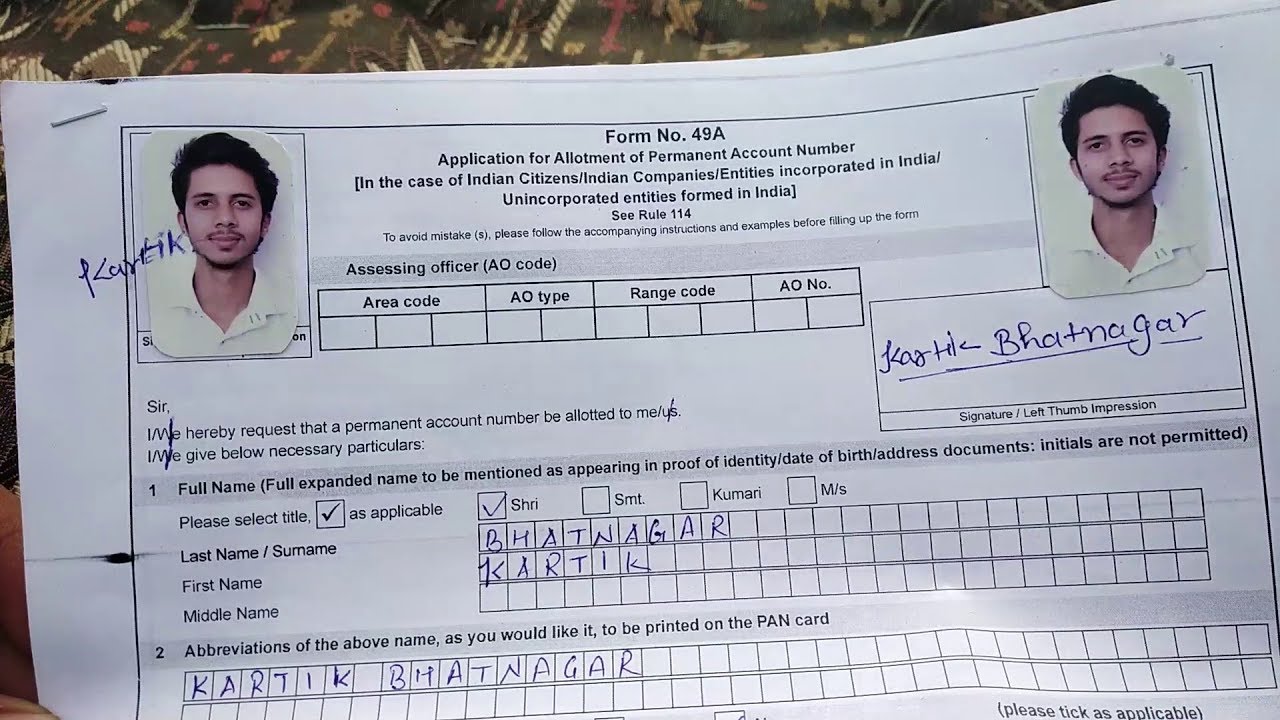 Form No. 49A
Application for Allotment of Permanent Account Number
[In the case of Indian Citizens/Indian Companies/Entities incorporated in India/
Unincorporated entities formed in India]
See Rule 114
To avoid mistake (s), please follow the accompanying instructions and examples before filling up the form
Assessing officer (AO code)
Area code AO type Range code AO No.
Kartik
Kartik Bhatnagar
Signature / Left Thumb Impression
Sir,
I/We hereby request that a permanent account number be allotted to me/us.
I/We give below necessary particulars:
1 Full Name (Full expanded name to be mentioned as appearing in proof of identity/date of birth/address documents: initials are not permitted)
Please select title, ✓ as applicable ✓ Shri Smt. Kumari M/s
Last Name / Surname BHATNAGAR
First Name KARTIK
Middle Name
2 Abbreviations of the above name, as you would like it, to be printed on the PAN card
KARTIK BHATNAGAR
(please tick as applicable)